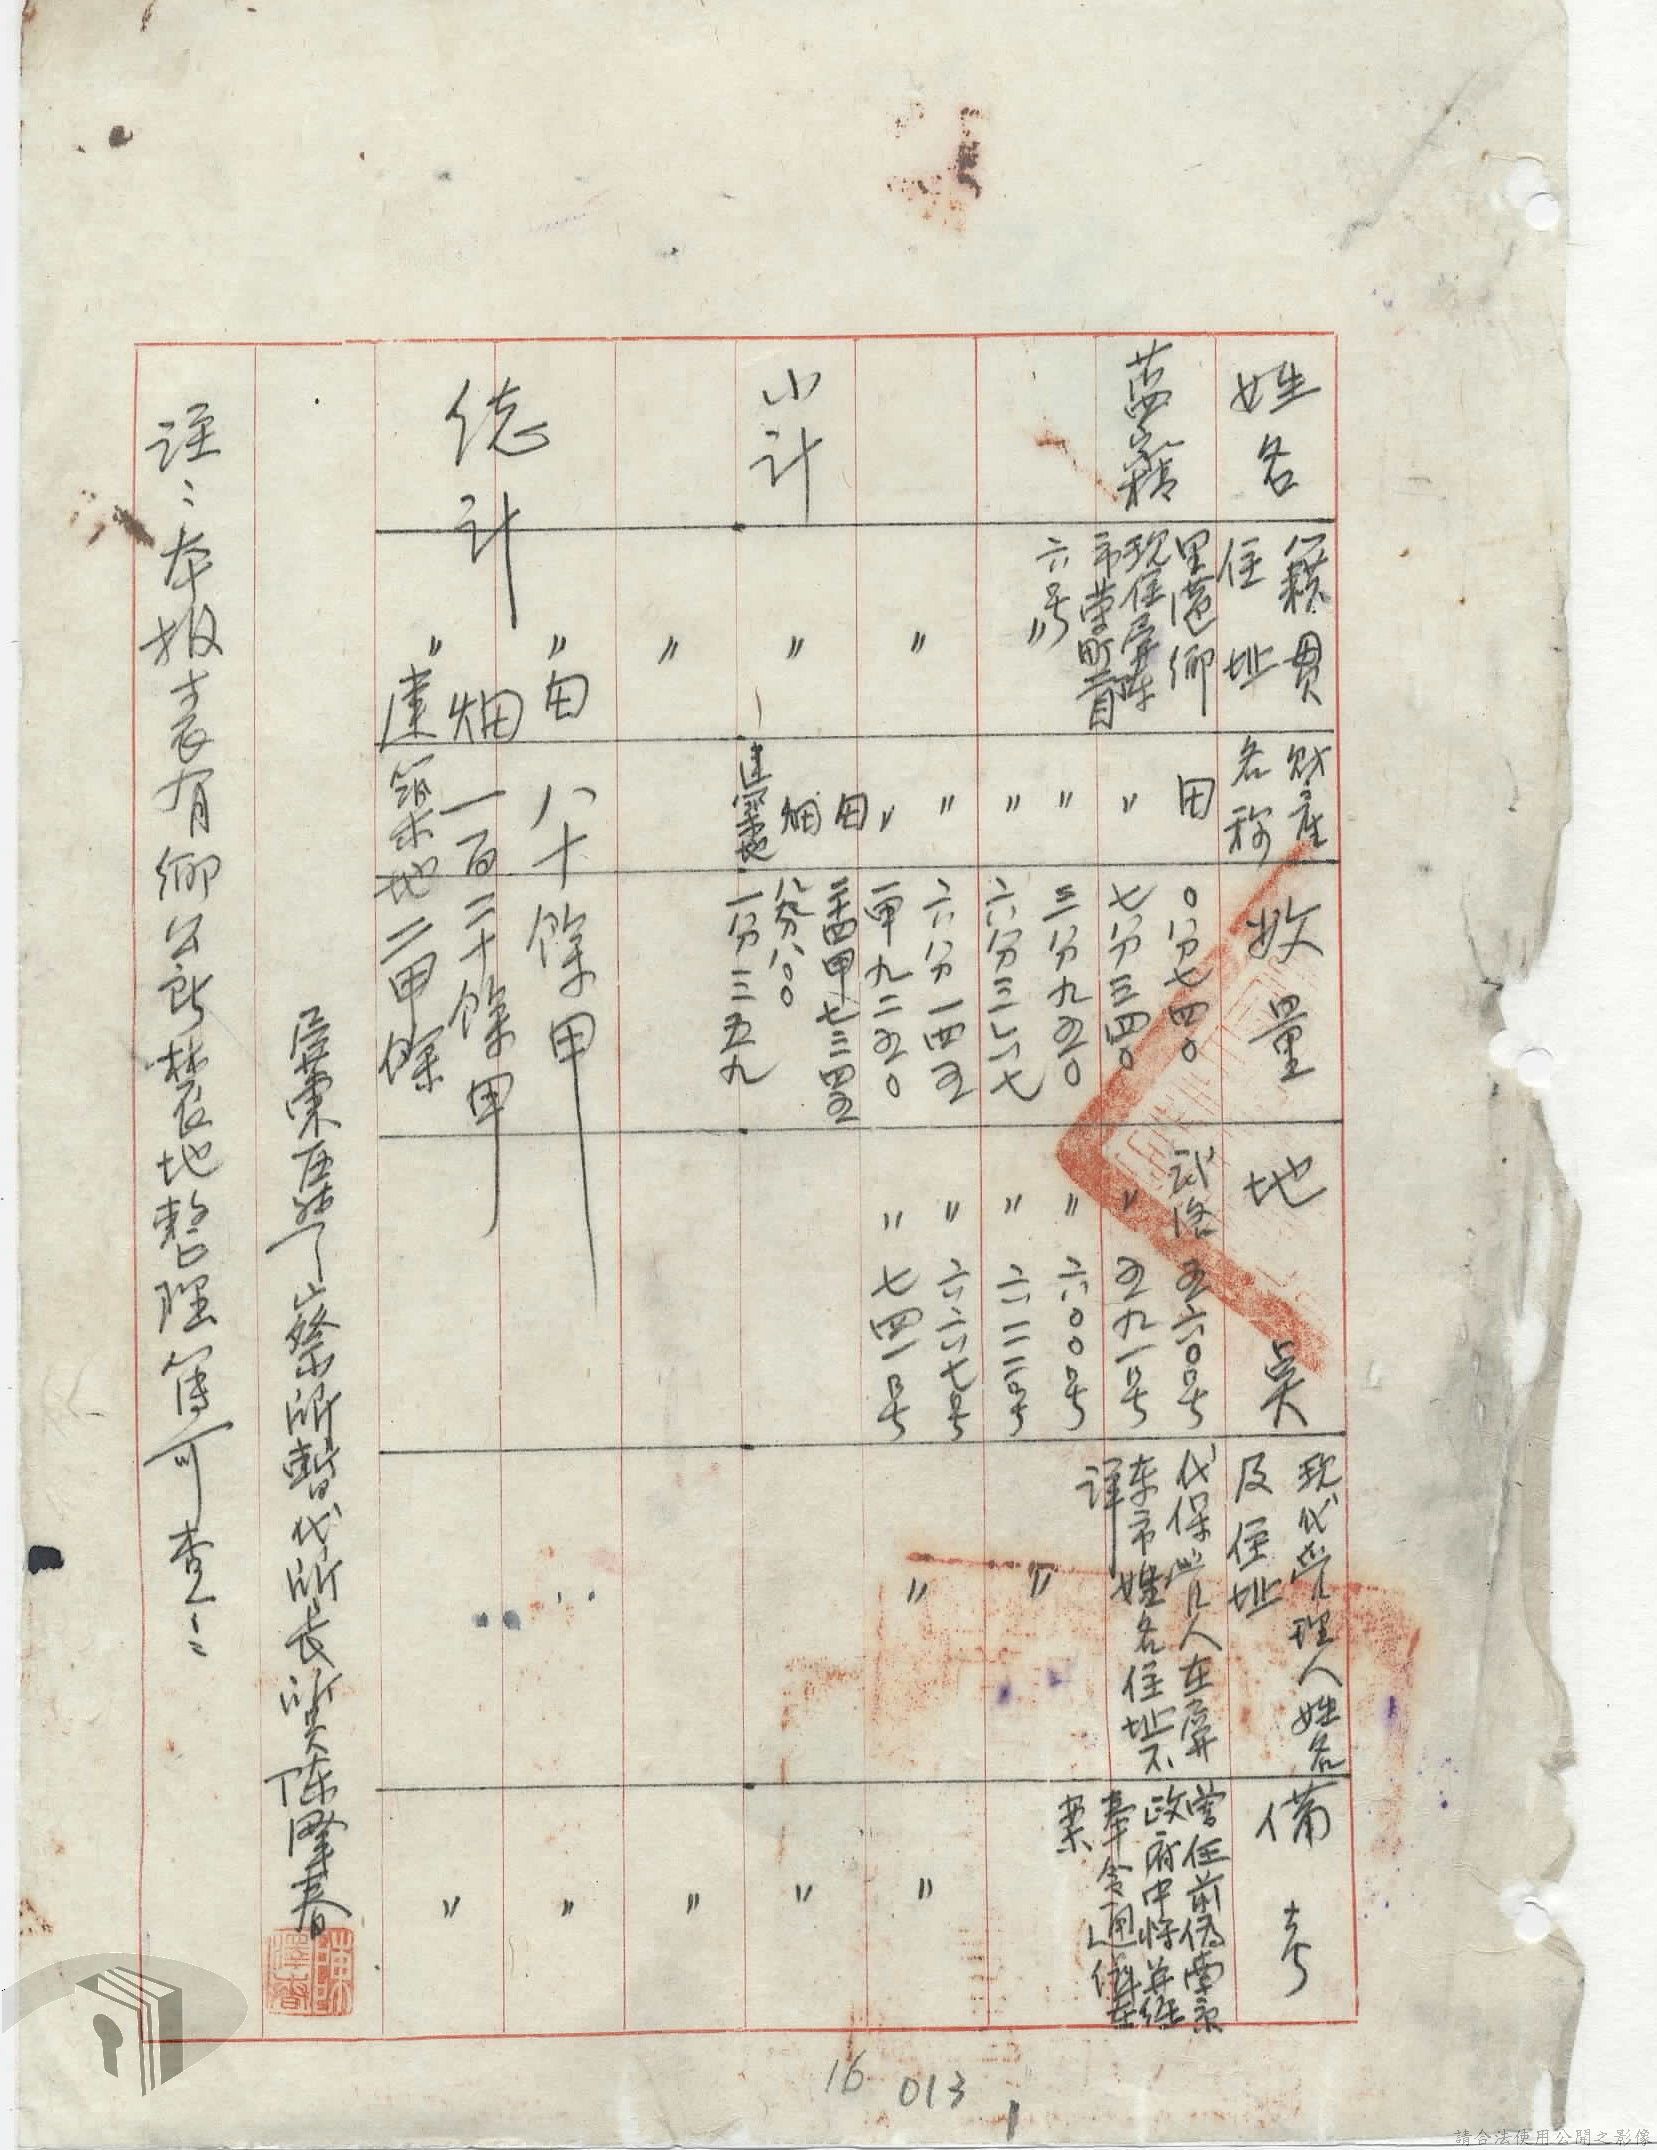 姓名
籍貫
住址
財產
名称
数量
地
奌
現代管理人姓名
及住址
備
考
藍家精
里港鄉
現住屏東
市榮町一百
六号
田
〇分七四〇
武洛 五六〇号
代保管人在屏
東市姓名住址不
詳
曾任前偽南京
政府中將并經
奉令通缉在
案
〃
七分三四〇
〃 五九一号
〃
〃
三分九五〇
〃 六〇〇号
〃
六分三六七
〃 六一二号
〃
〃
六分一四五
〃 六六七号
〃
〃
一甲九二五〇
〃 七四一号
〃
〃
小計
〃
田
畑
建築地
二十四甲七三四五
八分八〇〇
一分三五九
〃
〃
〃
総計
〃
田 八十餘甲
〃
畑 一百二十餘甲
〃
建築地二甲餘
〃
屏東區警察所暫代所長 陳擇春
註:本报表有鄉公所林农地整理簿可查:
陳擇春
16
013
1
請合法使用公開之影像